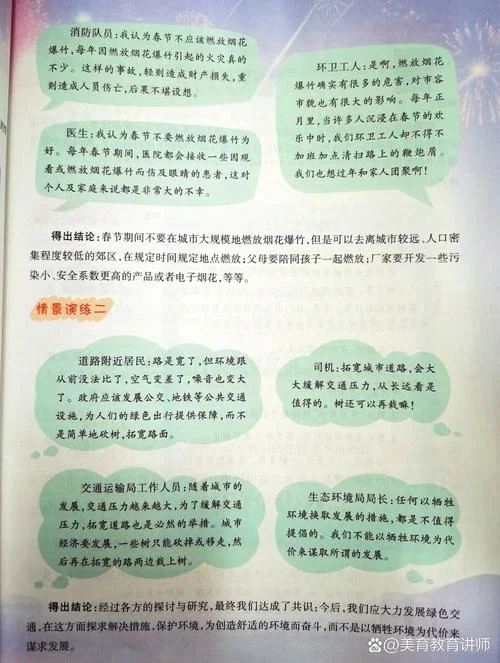 消防队员：我认为春节不应该燃放烟花
爆竹，每年因燃放烟花爆竹引起的火灾真的
不少。这样的事故，轻则造成财产损失，重
则造成人员伤亡，后果不堪设想。
医生：我认为春节不要燃放烟花爆竹为
好。每年春节期间，医院都会接收一些因观
看或燃放烟花爆竹而伤及眼睛的患者，这对
个人及家庭来说都是非常大的不幸。
环卫工人：是啊，燃放烟花
爆竹确实有很多的危害，对市容
市貌也有很大的影响。每年正
月里，当许多人沉浸在春节的欢
乐中时，我们环卫工人却不得不
加班加点清扫路上的鞭炮屑。
我们也想过年和家人团聚啊！
得出结论：春节期间不要在城市大规模地燃放烟花爆竹，但是可以去离城市较远、人口密
集程度较低的郊区，在规定时间规定地点燃放；父母要陪同孩子一起燃放；厂家要开发一些污
染小、安全系数更高的产品或者电子烟花，等等。
情景演练二
道路附近居民：路是宽了，但环境跟
从前没法比了，空气变差了，噪音也变大
了。政府应该发展公交、地铁等公共交通
设施，为人们的绿色出行提供保障，而不
是简单地砍树，拓宽路面。
司机：拓宽城市道路，会大
大缓解交通压力，从长远看是
值得的。树还可以再栽嘛！
交通运输局工作人员：随着城市的
发展，交通压力越来越大，为了缓解交通
压力，拓宽道路也是必然的举措。城市
经济要发展，一些树只能砍掉或移走，然
后再在拓宽的路两边栽上树。
生态环境局局长：任何以牺牲
环境换取发展的措施，都是不值得
提倡的。我们不能以牺牲环境为代
价来谋取所谓的发展。
得出结论：经过各方的探讨与研究，最终我们达成了共识：今后，我们应大力发展绿色交
通，在这方面探求解决措施，保护环境，为创造舒适的环境而奋斗，而不是以牺牲环境为代价来
谋求发展。
美育教育讲师